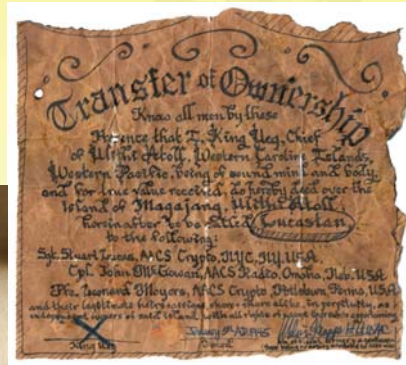 Transfer of Ownership
Know all men by these
Presence that I, King Ueg, Chief
of Ulithi Atoll, Western Caroline Islands,
Western Pacific, being of sound mind and body,
and for true value received, do hereby deed over the
Island of Magajang, Ulithi Atoll,
hereinafter to be called
to the following:
Sgt. Stuart AACS Crypto, NYC, NY, USA
Cpl. John McGowan, AACS Radio, Omaha, Neb. USA
Pfc. Leonard Meyers, AACS Crypto, Penna, USA
and their legitimate in perpetuity, as
independent owners of said island, with all rights of
X
January 5th AD 1945
King Ueg